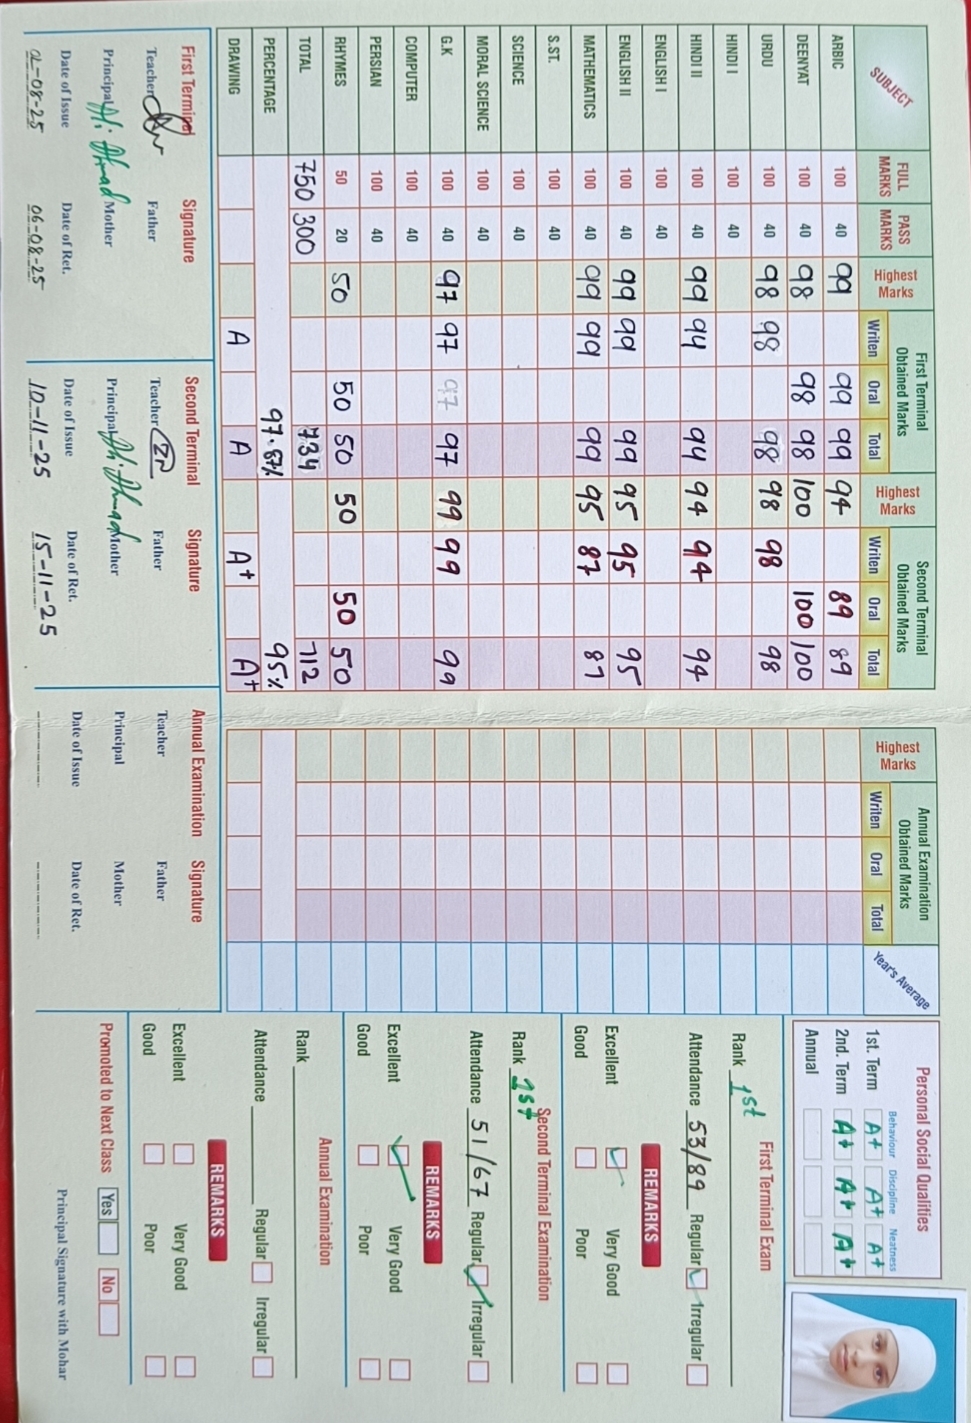 SUBJECT FULL MARKS PASS MARKS Highest Marks First Terminal Obtained Marks Writen Oral Total Highest Marks Second Terminal Obtained Marks Writen Oral Total Highest Marks Annual Examination Obtained Marks Writen Oral Total Year's Average
ARBIC 100 40 99 99 99 94 89 89
DEENYAT 100 40 98 98 98 100 100 100
URDU 100 40 98 98 98 98 98 98
HINDI I 100 40
HINDI II 100 40 99 94 94 94 94 94
ENGLISH I 100 40
ENGLISH II 100 40 99 99 99 95 95 95
MATHEMATICS 100 40 99 99 99 95 87 87
S.ST. 100 40
SCIENCE 100 40
MORAL SCIENCE 100 40
G.K 100 40 97 97 97 97 99 99 99
COMPUTER 100 40
PERSIAN 100 40
RHYMES 50 20 50 50 50 50 50 50
TOTAL 750 300 734 712
PERCENTAGE 97.87% 95%
DRAWING A A A+ A+
First Terminal Signature
Teacher Father
Principal Mother
Date of Issue Date of Ret.
-08-25 06-08-25
Second Terminal Signature
Teacher Father
Principal Mother
Date of Issue Date of Ret.
10-11-25 15-11-25
Annual Examination Signature
Teacher Father
Principal Mother
Date of Issue Date of Ret.
Personal Social Qualities
Behaviour Discipline Neatness
1st. Term A+ A+ A+
2nd. Term A+ A+ A+
Annual
First Terminal Exam
Rank 1st
Attendance 53/89 Regular Irregular
REMARKS
Excellent Very Good
Good Poor
Second Terminal Examination
Rank 1st
Attendance 51/67 Regular Irregular
REMARKS
Excellent Very Good
Good Poor
Annual Examination
Rank
Attendance Regular Irregular
REMARKS
Excellent Very Good
Good Poor
Promoted to Next Class Yes No
Principal Signature with Mohar